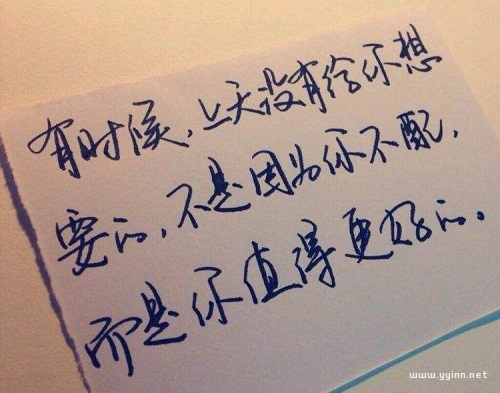 有时候，上天没有给你想
要的，不是因为你不配，
而是你值得更好的。
www.yyinn.net